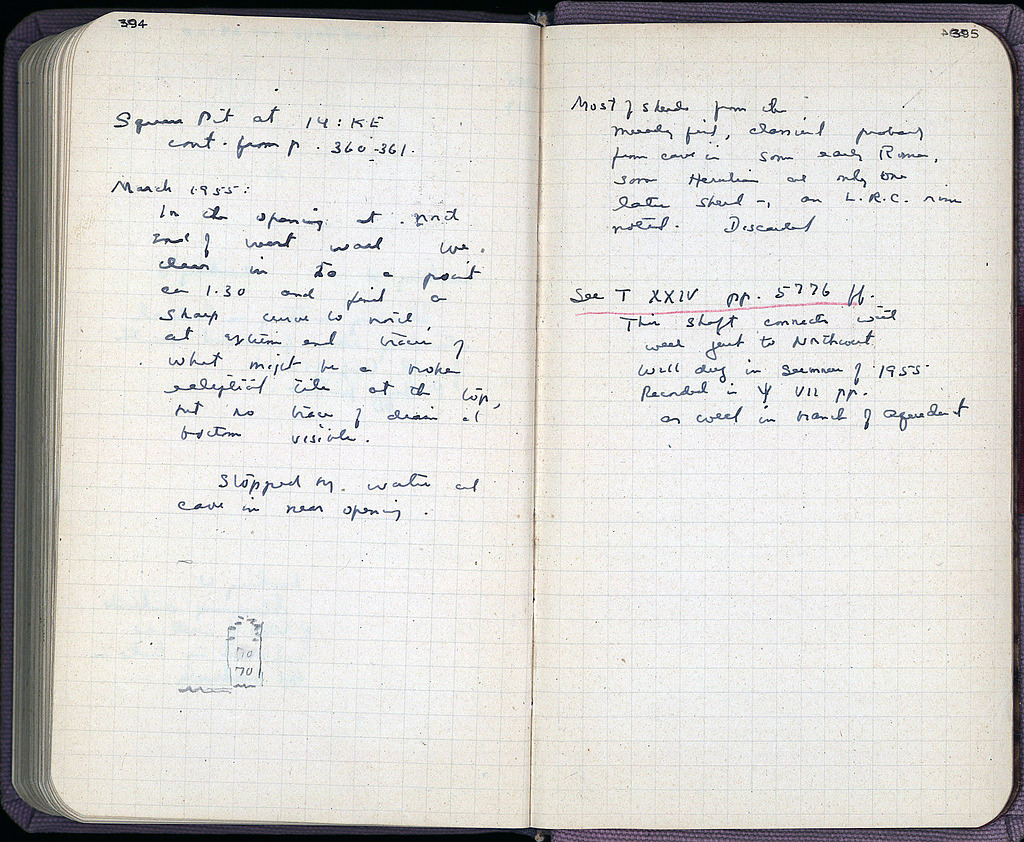 394
Square Pit at 14:KE
cont. from p. 360-361.
March 1955:
In the opening at north
end of west wall we
clear in to a point
ca 1.30 and find a
sharp curve to north,
at extreme end traces of
what might be a broken
elliptical tile at the top,
but no trace of drain at
bottom visible.
Stopped by water and
cave in near opening.
70
70
395
Most of sherds from the
muddy fill, classical probably
from cave in some early Roman,
some Herulian and only one
later sherd -, an L.R.C. rim
noted. Discarded
See T XXIV pp. 5776 ff.
This shaft connects with
well just to Northwest
Well dug in summer of 1955
Recorded in Ψ VII pp.
as well in branch of aqueduct